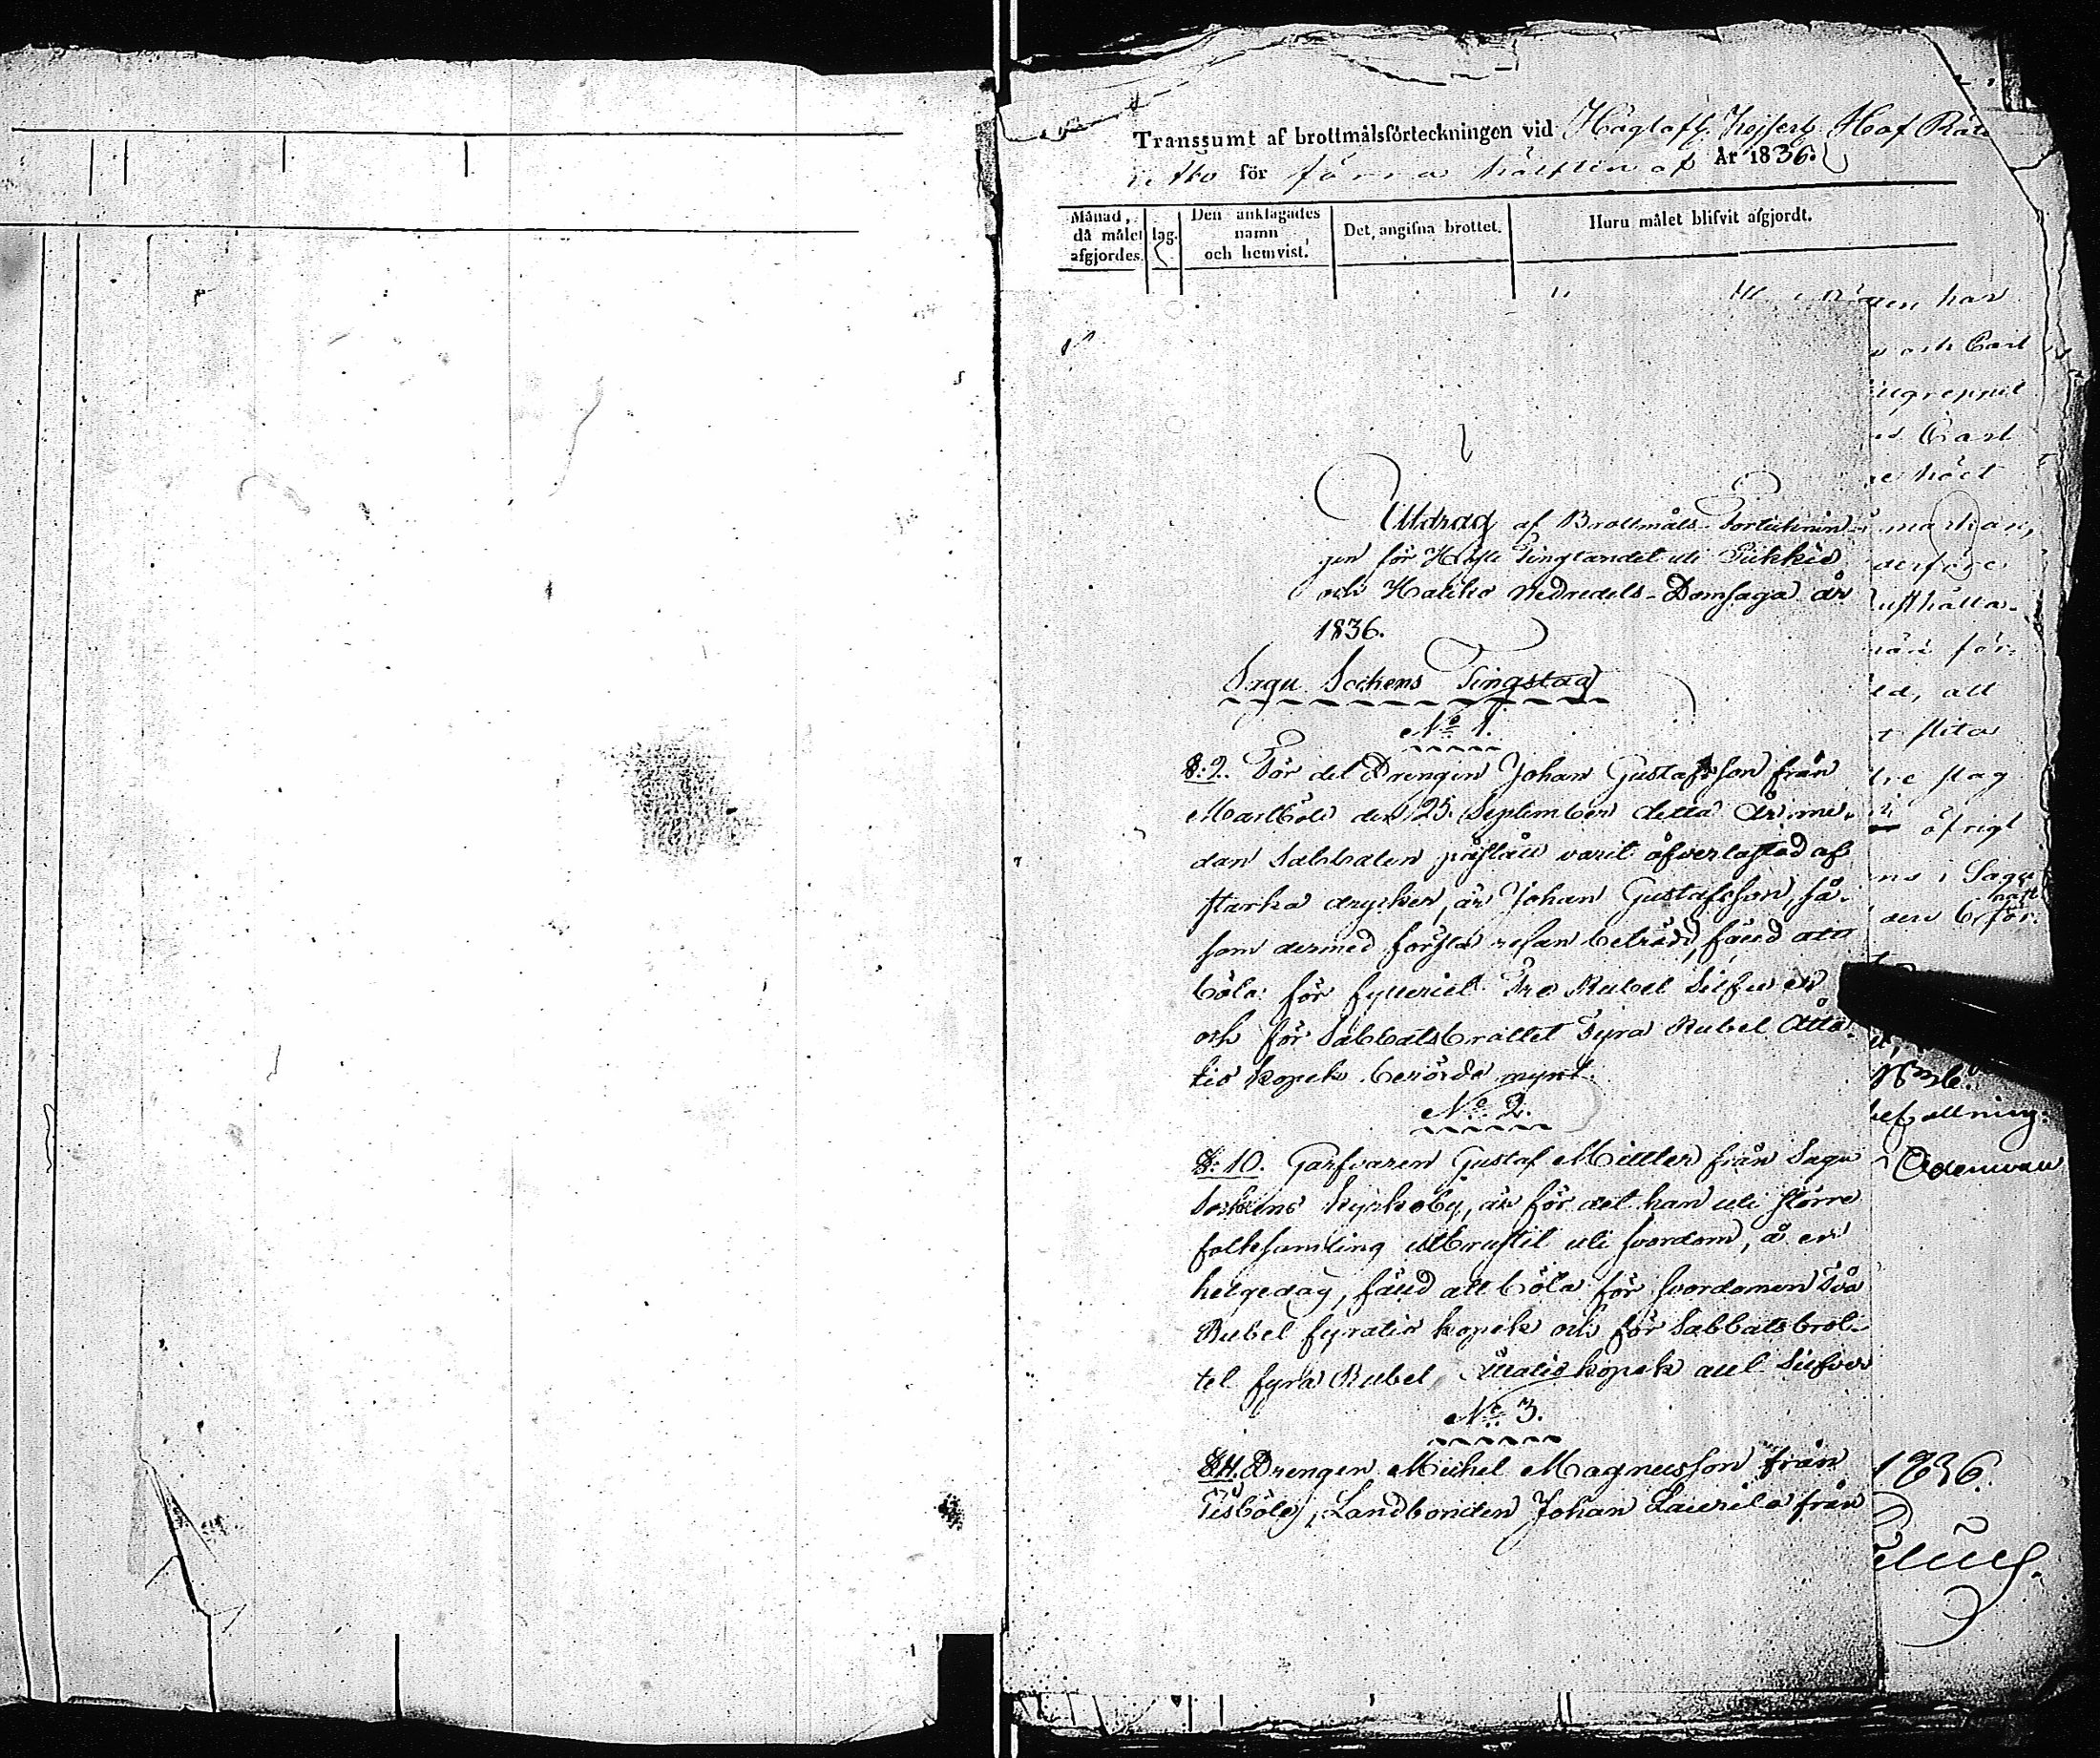 Transsumt af brottmålsförteckningen vid Höglofl. Kejserl. Hof Rätt
för förra hälften af År 1836.
Månad, då målet afgjordes.
lag.
Den anklagades namn och hemvist.
Det angifna brottet.
Huru målet blifvit afgjordt.
Utdrag af Brottmåls-Förtecknin-
gen för Höste Tingtandet uti Pikkis
och Haliko Nedredels-Domsaga år
1836.
Sagu Sockens Tingslag
No 1.
§: 2. För det Drengen Johan Gustafsson från
den 25 September detta År me-
dan Sabbaten påstått varit öfverlastad af
starka drycker, är Johan Gustafsson, så-
som dermed första resan beträdd, fäld att
böta för fylleriet Tre Rubel Silfver
och för Sabbatsbrottet Fyra Rubel Åtta-
tio kopek berörde mynt.
No 2.
§: 10. Garfvaren Gustaf Miller från Sagu
Sockens Kyrkoby, är för det han uti större
folksamling utbrustit uti svordom, å en
helgedag, fäld att böta för svordomen Två
Rubel fyratio kopek och för Sabbatsbrot-
tet fyra Rubel Åttatio kopek allt Silfver
No 3.
§ 11. Drengen Michel Magnusson från
Pisböle, Landbonden Johan Laurila från
har
och Carl
Carl
derföre
för-
att
slita
slag
öfrigt
i Sagu
den 6
1836.
befallning.
1836.